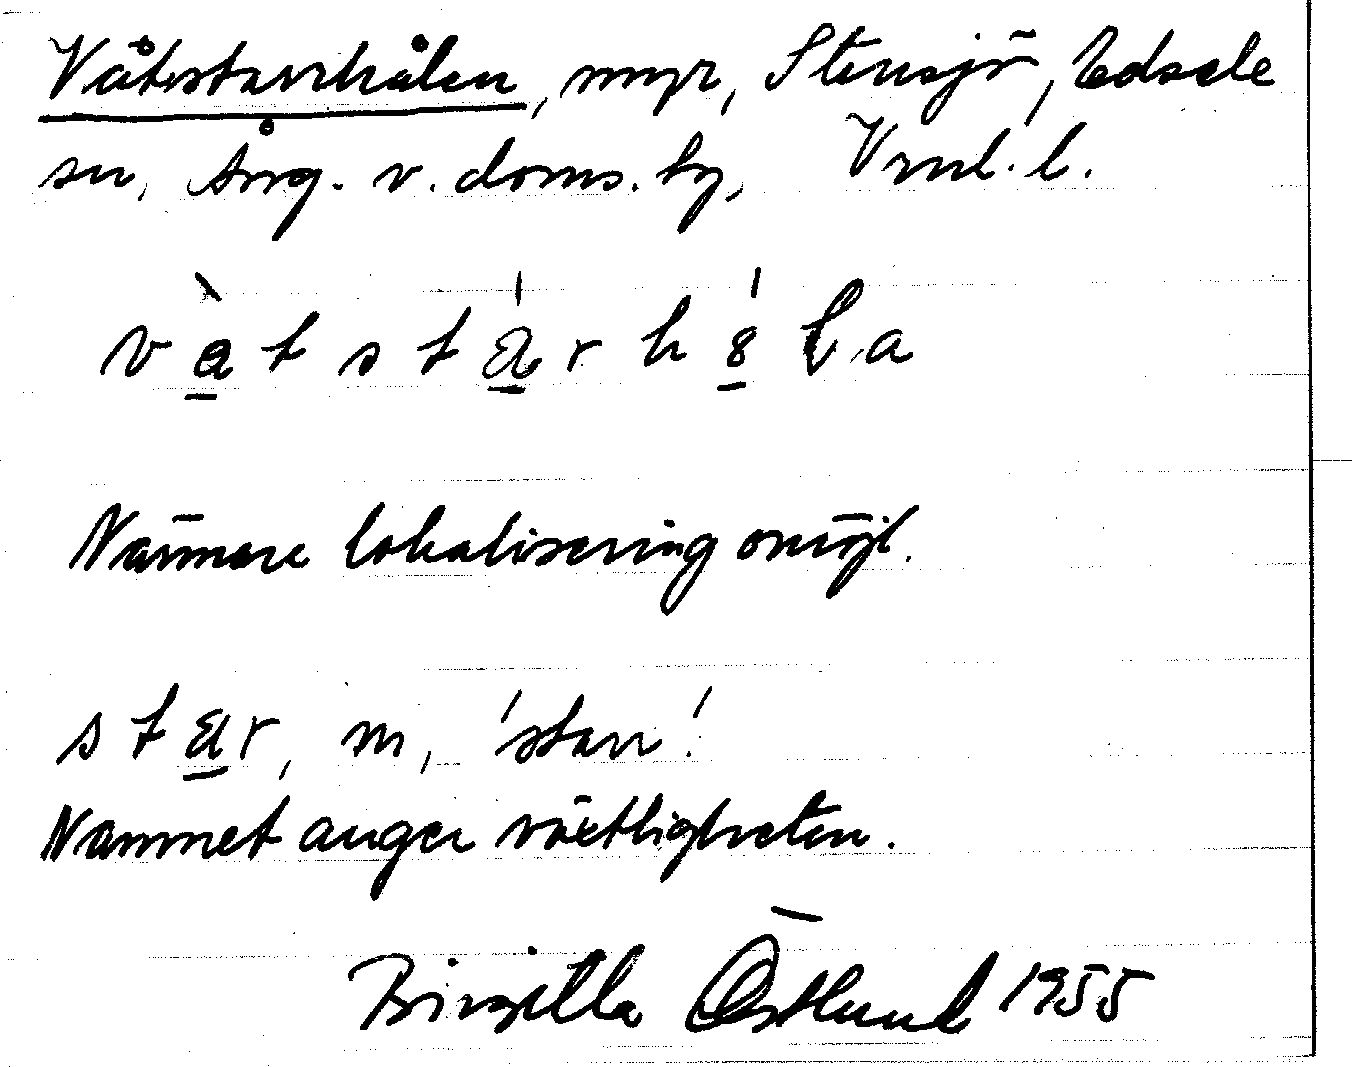 Våtstarrhålen, myr, Stensjö, Edsele
sn, Ång. v. doms. hg, Vrnl. l.
v a t s t a r h 8 l a
Närmare lokalisering omöjl.
star, m, 'starr'.
Namnet anger växtligheten.
Birgitta Östlund 1955